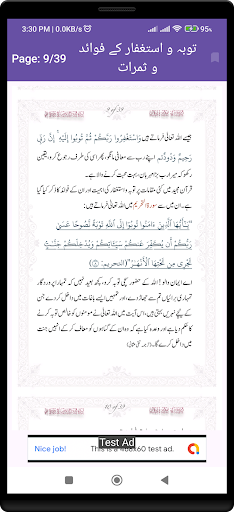 3:30 PM | 0.0KB/s
95
Page: 9/39
توبہ و استغفار کے فوائد
و ثمرات
9 of 39
جیسے اللہ تعالیٰ فرماتے ہیں وَاسْتَغْفِرُوا رَبَّكُمْ ثُمَّ تُوبُوا إِلَيْهِ ۚ إِنَّ رَبِّي
رَحِيمٌ وَدُودٌ تم اپنے رب سے معافی مانگو، پھر اسی کی طرف رجوع کرو، یقین
رکھو کہ میرا رب بڑا مہربان، بہت محبت کرنے والا ہے۔
قرآن مجید میں کئی مقامات پر توبہ و استغفار کی اہمیت اور ان کے فوائد کا ذکر کیا گیا
ہے، ان میں سے سورۃ التحریم میں اللہ تعالیٰ فرماتے ہیں:
"يَٰٓأَيُّهَا ٱلَّذِينَ ءَامَنُوا۟ تُوبُوٓا۟ إِلَى ٱللَّهِ تَوْبَةً نَّصُوحًا عَسَىٰ
رَبُّكُمْ أَن يُكَفِّرَ عَنكُمْ سَيِّـَٔاتِكُمْ وَيُدْخِلَكُمْ جَنَّٰتٍ
تَجْرِى مِن تَحْتِهَا ٱلْأَنْهَٰرُ" (التحریم:
اے ایمان والو! اللہ کے حضور سچی توبہ کرو، کچھ بعید نہیں کہ تمہارا پروردگار
تمہاری برائیاں تم سے جھاڑ دے، اور تمہیں ایسے باغات میں داخل کردے جن
کے نیچے نہریں بہتی ہیں، اس آیت میں اللہ تعالیٰ نے مومنوں کو سچی توبہ کرنے
کا حکم دیا ہے اور وعدہ کیا ہے کہ وہ ان کے گناہوں کو معاف کر کے انہیں جنت
میں داخل کردے گا۔
10 of 39
Test Ad
Nice job!
This is a 468x60 test ad.